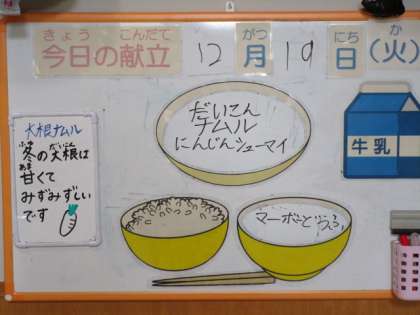 きょう こんだて がつ にち か
今日の献立 12月19日(火)
だいこん
ナムル
にんじんシューマイ
牛乳
大根ナムル
ふゆ だいこん
冬の大根は
あま
甘くて
みずみずしい
です
マーボーどうふ